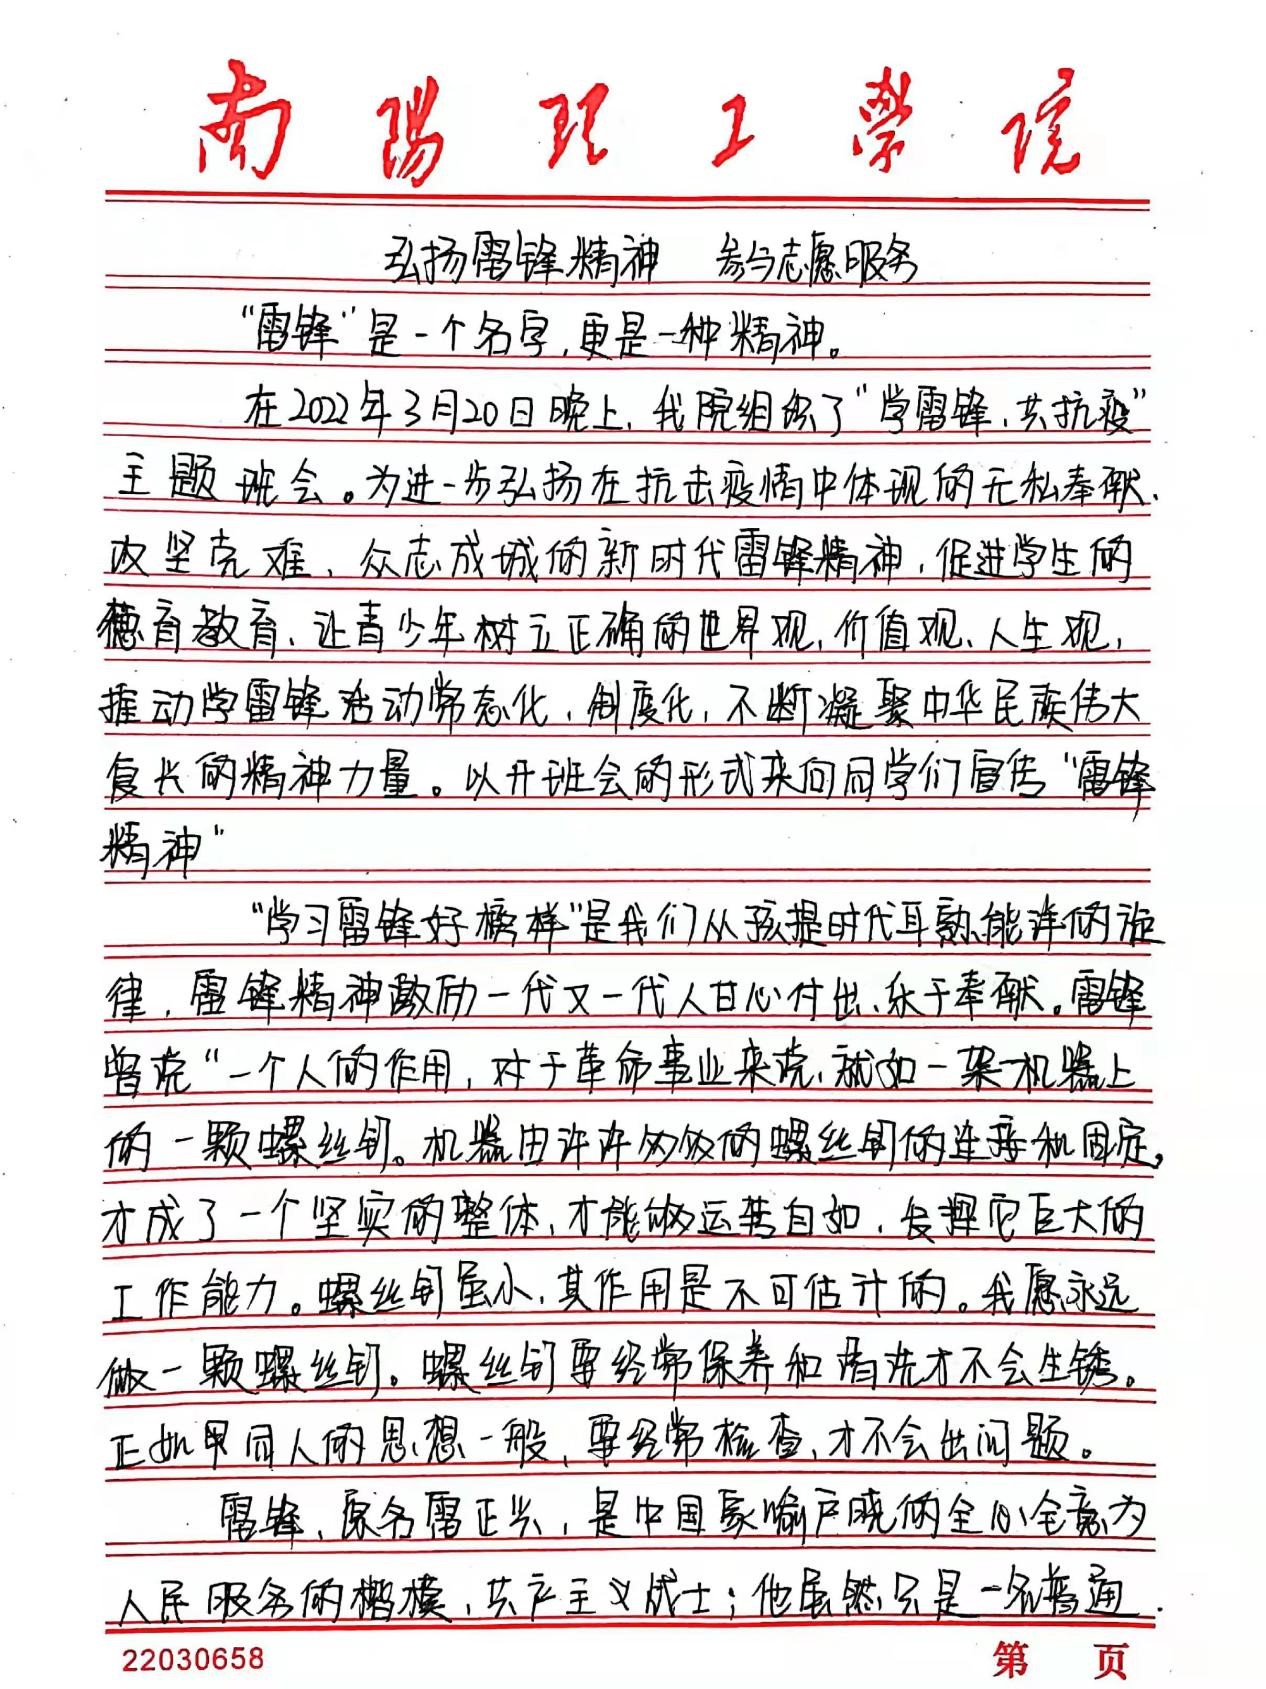 南阳理工学院
弘扬雷锋精神 参与志愿服务
“雷锋”是一个名字，更是一种精神。
在2022年3月20日晚上，我院组织了“学雷锋，共抗疫”
主题班会。为进一步弘扬在抗击疫情中体现的无私奉献、
攻坚克难、众志成城的新时代雷锋精神，促进学生的
德育教育、让青少年树立正确的世界观、价值观、人生观，
推动学雷锋活动常态化，制度化，不断凝聚中华民族伟大
复长的精神力量。以开班会的形式来向同学们宣传“雷锋
精神”
“学习雷锋好榜样”是我们从孩提时代耳熟能详的旋
律，雷锋精神激励一代又一代人甘心付出、乐于奉献。雷锋
曾说“一个人的作用，对于革命事业来说，就如一架机器上
的一颗螺丝钉。机器由许许多多的螺丝钉的连接和固定，
才成了一个坚实的整体，才能够运转自如，发挥它巨大的
工作能力。螺丝钉虽小，其作用是不可估计的。我愿永远
做一颗螺丝钉。螺丝钉要经常保养和清洗才不会生锈。
正如甲同人的思想一般，要经常检查，才不会出问题。
雷锋，原名雷正兴，是中国家喻户晓的全心全意为
人民服务的楷模，共产主义战士；他虽然只是一名普通
22030658 第 页